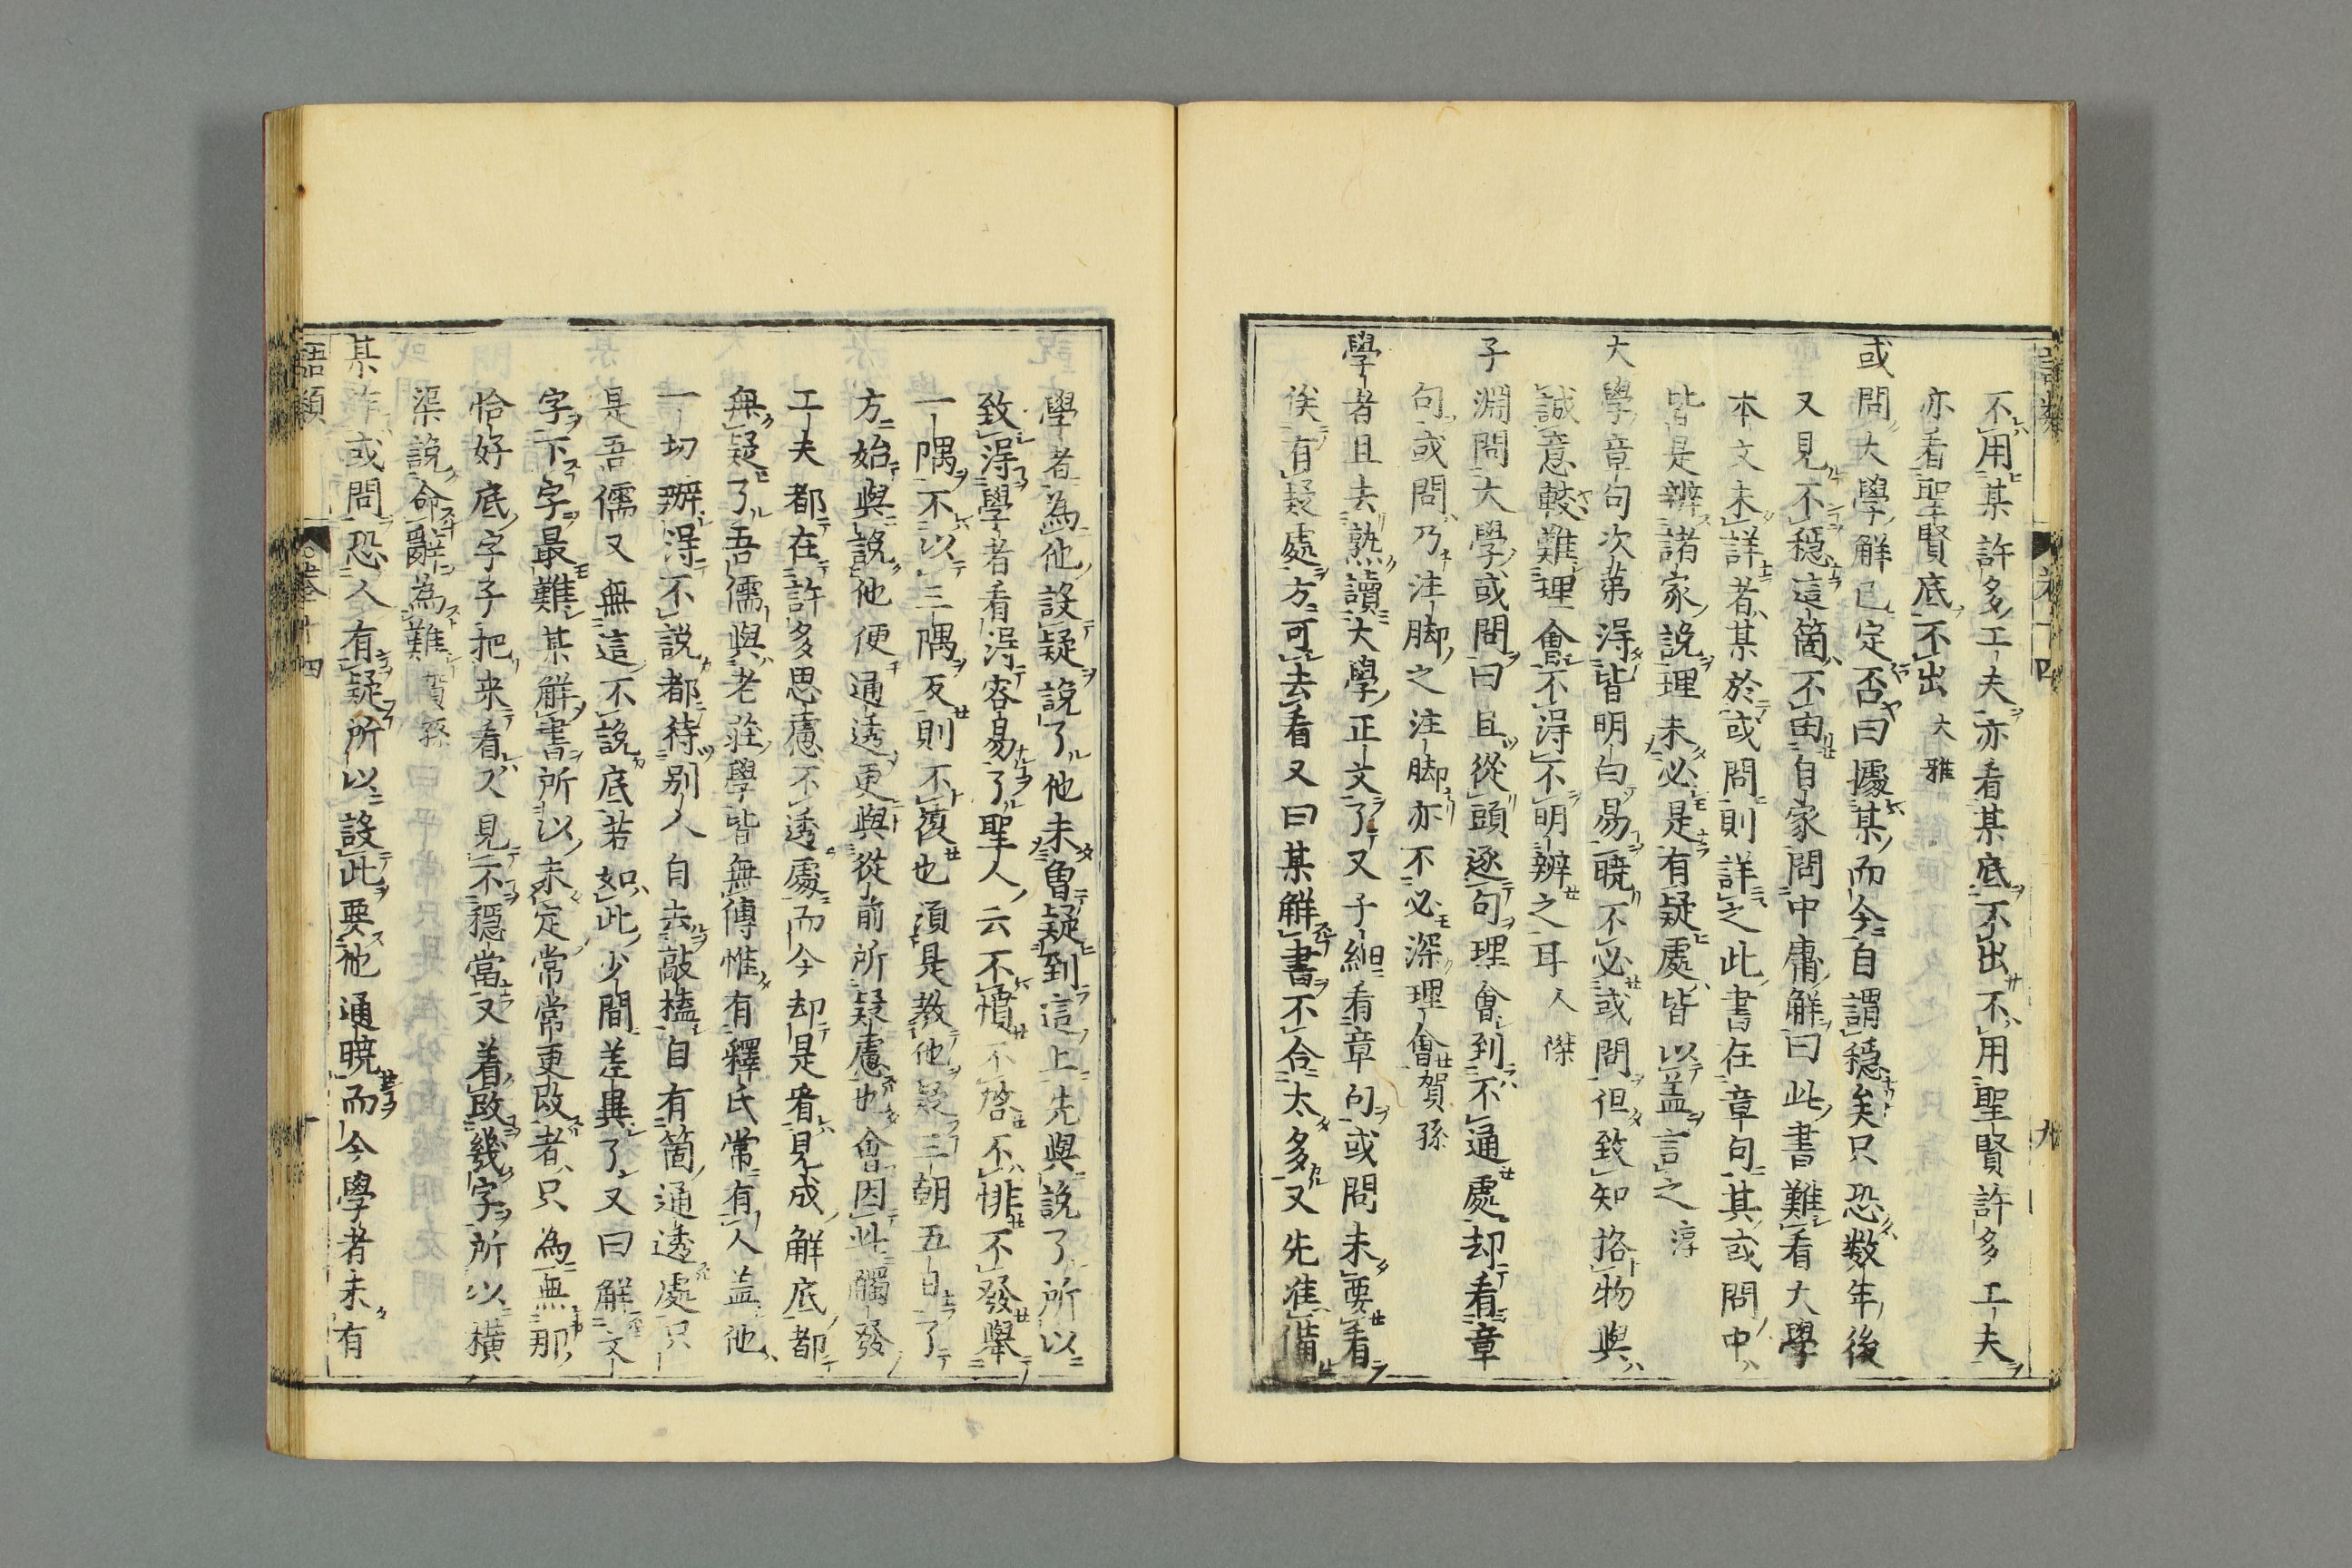 不用某許多工夫亦看某底不出不用聖賢許多工夫
亦看聖賢底不出 大雅
或問大學解已定否曰據某而今自謂穩矣只恐数年後
又見不穩這箇不由自家問中庸解曰此書難看大學
本文未詳者某於或問則詳之此書在章句其或問中
皆是辨諸家說理未必是有疑處皆以盖言之 淳
大學章句次第得皆明白易曉不必或問但致知挌物與
誠意較難理會不得不明辨之耳 人傑
子淵問大學或問曰且從頭逐句理會到不通處却看章
句或問乃注脚之注脚亦不必深理會 賀孫
學者且去熟讀大學正文了又子細看章句或問未要看
俟有疑處方可去看又曰某解書不合太多又先准備
學者為他設疑說了他未曽疑到這上先與說了所以
致得學者看得容易了聖人云不憤不啓不悱不發舉
一隅不以三隅反則不復也須是教他疑三朝五日了
方始與說他便通透更與從前所疑慮也會因此觸發
工夫都在許多思慮不透處而今却是看見成解底都
無疑了吾儒與老莊學皆無傳惟有釋氏常有人盖他
一切辨得不說都待別人自去敲搕自有箇通透處只
是吾儒又無這不說底若如此少間差異了又曰解文
字下字最難某解書所以未定常常更改者只為無那
恰好底字子把来看又見不穩當又着改幾字所以橫
渠說命辭為難 賀孫
某作或問恐人有疑所以設此要他通曉而今學者未有
語類
卷十四
十
語類
卷十四
九